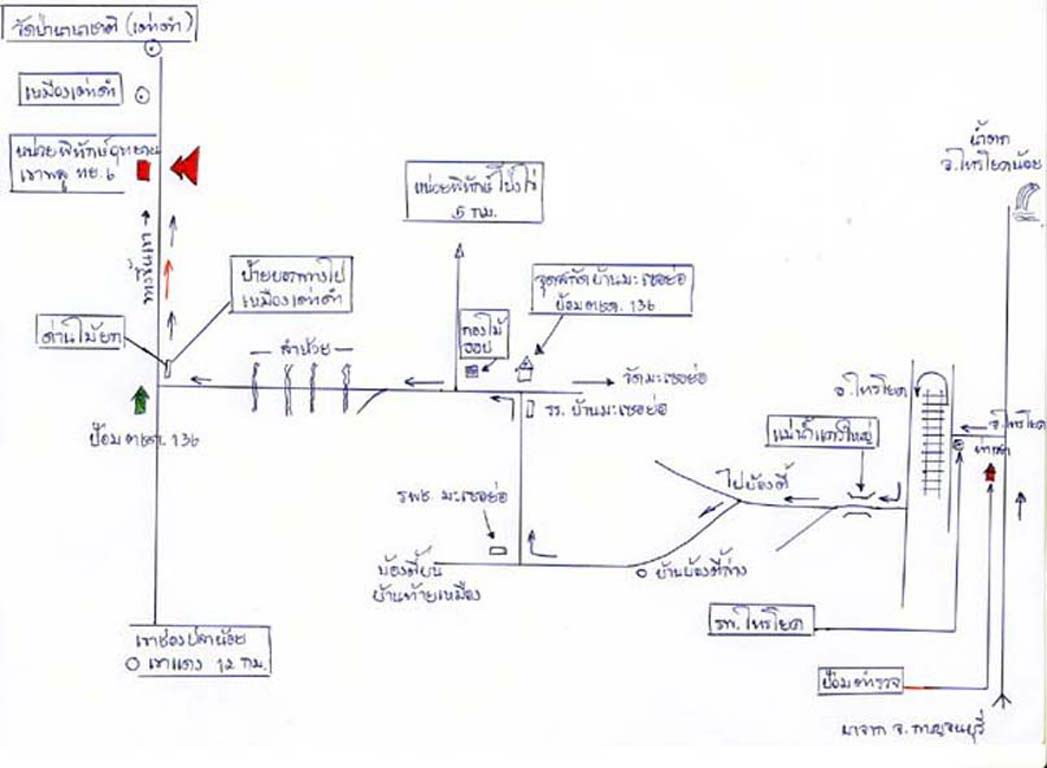 วัดป่านานาชาติ (เต่าดำ)
เหมืองเต่าดำ
หน่วยพิทักษ์อุทยาน
เขาพลู ทย. 6
น้ำตก
อ.ไทรโยคน้อย
หน่วยพิทักษ์ โป่งไร่
5 กม.
ป้ายบอกทางไป
เหมืองเต่าดำ
จุดสกัดบ้านมะเซอย่อ
ป้อม ตชด. 136
กองไม้
ด่านไม้ยก
ลำห้วย
วัดมะเซอย่อ
อ.ไทรโยค
รร. บ้านมะเซอย่อ
อ.ไทรโยค
แม่น้ำแควใหญ่
ป้อม ตชด. 136
ไปบ้องตี้
รพช. มะเซอย่อ
บ้องตี้บน
บ้านท้ายเหมือง
บ้านบ้องตี้ล่าง
รพ. ไทรโยค
เขาช่องปลาน้อย
เขาแดง 12 กม.
ป้อมตำรวจ
มาจาก จ. กาญจนบุรี